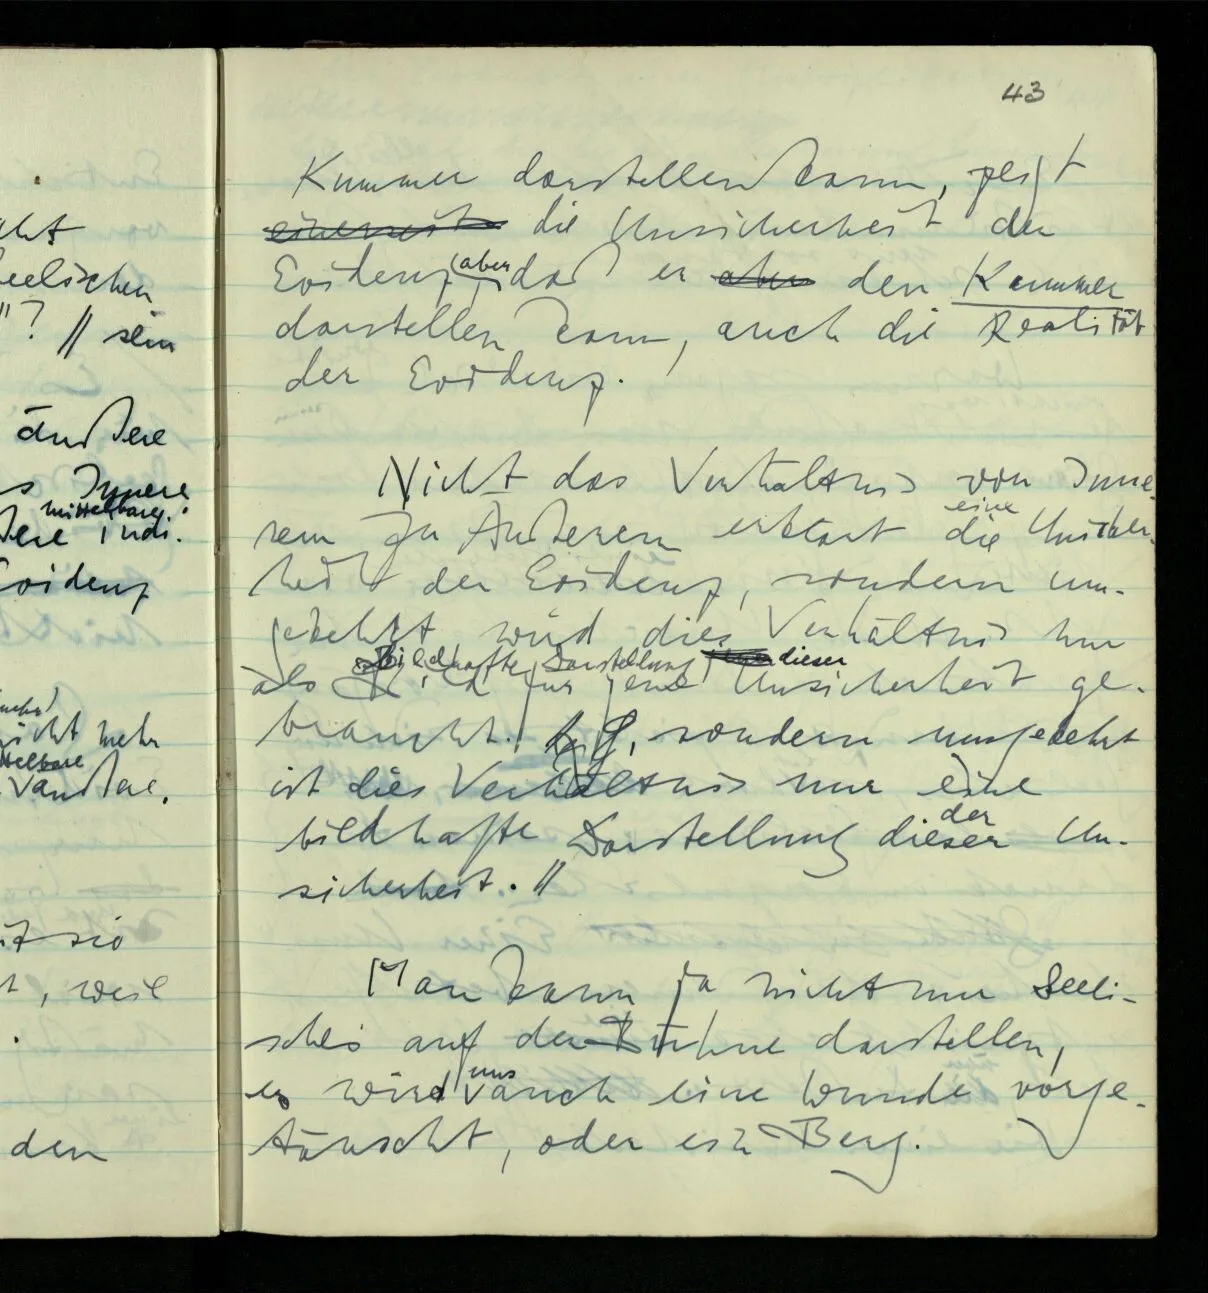 43
cht
Seelischen
"? // sein
äußere
s Innere
mittelbares
ßere indi.
Evidenz
nicht mehr
telbare
Vaußere.
ist sie
t, weil
.
den
Kummer darstellen kann, zeigt
einerseits die Unsicherheit der
Evidenz, aber daß er aber den Kummer
darstellen kann, auch die Realität
der Evidenz.
Nicht das Verhältnis von Inne-
rem zu Äußerem erklärt die eine Unsicher-
heit der Evidenz, sondern um-
gekehrt wird dies Verhältnis nur
als Bild bildhafte Darstellung für jene dieser Unsicherheit ge-
braucht. //, sondern umgekehrt
ist dies Verhältnis nur eine
bildhafte Darstellung dieser der Un-
sicherheit. //
Man kann ja nicht nur Seeli-
sches auf der Bühne darstellen,
es wird uns auch eine Wunde vorge-
täuscht, oder ein Berg.